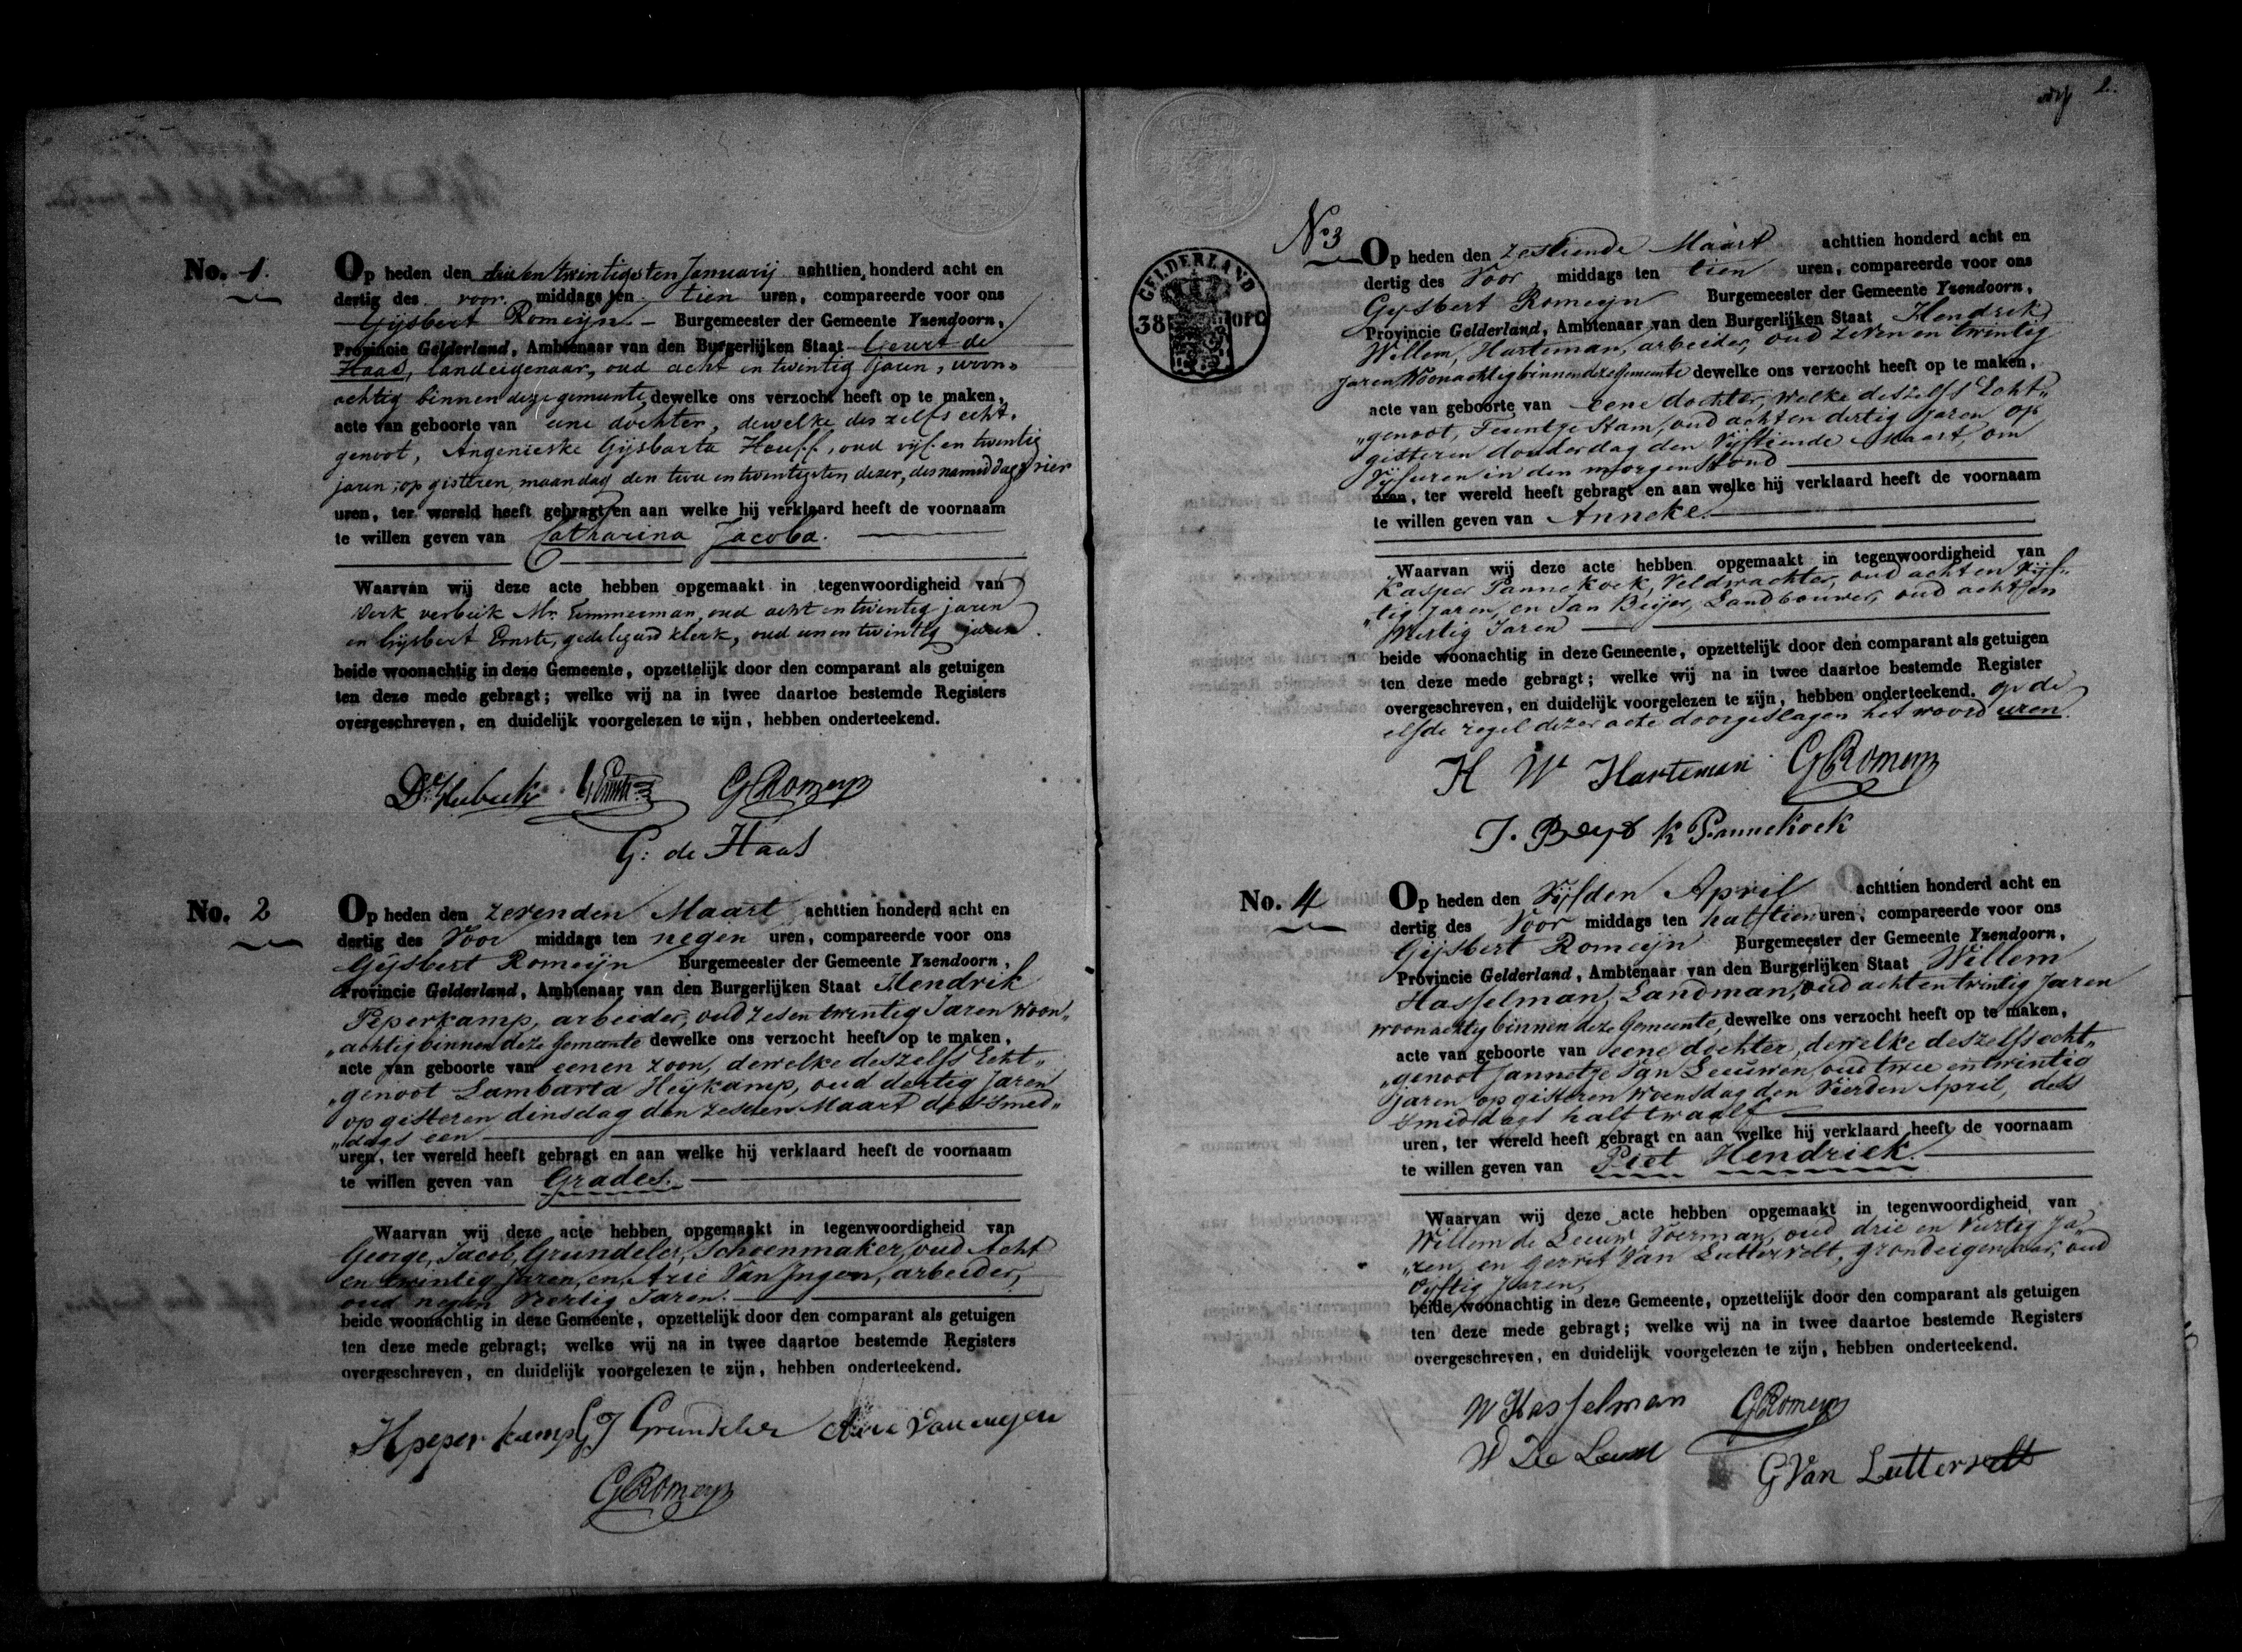 No. 1.
Op heden den drie en twintigsten Januarij achttien honderd acht en
dertig des voor middags ten tien uren, compareerde voor ons
Gijsbert Romeijn Burgemeester der Gemeente Yzendoorn,
Provincie Gelderland, Ambtenaar van den Burgerlijken Staat Geurt de
Haas, landeigenaar, oud acht en twintig Jaren, woon„
achtig binnen deze gemeente, dewelke ons verzocht heeft op te maken,
acte van geboorte van eene dochter, dewelke des zelfs echt„
genoot, Angenieske Gijsbarta Houff, oud vijf en twintig
jaren, op gisteren, maandag den twee en twintigsten dezer, des namiddags vier
uren, ter wereld heeft gebragt en aan welke hij verklaard heeft de voornaam
te willen geven van Catharina Jacoba.
Waarvan wij deze acte hebben opgemaakt in tegenwoordigheid van
Derk verbeek Mr. Timmerman, oud acht en twintig jaren
en Gijsbert Ernste, gedelegeerd klerk, oud een en twintig jaren
beide woonachtig in deze Gemeente, opzettelijk door den comparant als getuigen
ten deze mede gebragt; welke wij na in twee daartoe bestemde Registers
overgeschreven, en duidelijk voorgelezen te zijn, hebben onderteekend.
Dk Verbeek G Ernste GRomeyn
G: de Haas
No. 2
Op heden den zevenden Maart achttien honderd acht en
dertig des Voor middags ten negen uren, compareerde voor ons
Gijsbert Romeijn Burgemeester der Gemeente Yzendoorn,
Provincie Gelderland, Ambtenaar van den Burgerlijken Staat Hendrik
Peperkamp, arbeider, oud zes en twintig Jaren woon„
„achtig binnen deze Gemeente dewelke ons verzocht heeft op te maken,
acte van geboorte van eenen zoon, dewelke deszelfs Echt„
„genoot Lambarta Heijkamp, oud dertig Jaren
op gisteren dinsdag den zesden Maart des smid„
„dags een
uren, ter wereld heeft gebragt en aan welke hij verklaard heeft de voornaam
te willen geven van Grades.
Waarvan wij deze acte hebben opgemaakt in tegenwoordigheid van
George, Jacob, Grundeler, Schoenmaker, oud Acht
en twintig Jaren, en, Arie Van Ingen, arbeider,
oud negen Veertig Jaren.
beide woonachtig in deze Gemeente, opzettelijk door den comparant als getuigen
ten deze mede gebragt; welke wij na in twee daartoe bestemde Registers
overgeschreven, en duidelijk voorgelezen te zijn, hebben onderteekend.
Hpeper kamp GJ Grundeler Arie van ingen
GRomeyn
2.
GELDERLAND
38
No 3
Op heden den zestiende Maart achttien honderd acht en
dertig des Voor middags ten tien uren, compareerde voor ons
Gijsbert Romeijn Burgemeester der Gemeente Yzendoorn,
Provincie Gelderland, Ambtenaar van den Burgerlijken Staat Hendrik
Willem, Harteman, arbeider, oud zeven en twintig
Jaren Woonachtig binnen deze Gemeente dewelke ons verzocht heeft op te maken,
acte van geboorte van eene dochter, welke deszelfs Echt„
„genoot, Teuntge Stam, oud acht en dertig Jaren op
gisteren donderdag den Vijftiende Maart, om
Vijf uren in den morgenstond
uren, ter wereld heeft gebragt en aan welke hij verklaard heeft de voornaam
te willen geven van Anneke.
Waarvan wij deze acte hebben opgemaakt in tegenwoordigheid van
Kasper Pannekoek, Veldwachter, oud acht en Vijf„
„tig Jaren, en Jan Beijer, Landbouwer, oud acht en
Veertig Jaren
beide woonachtig in deze Gemeente, opzettelijk door den comparant als getuigen
ten deze mede gebragt; welke wij na in twee daartoe bestemde Register
overgeschreven, en duidelijk voorgelezen te zijn, hebben onderteekend. op de
elfde regel dezer acte doorgeslagen het woord uren.
H W Harteman GRomeyn
J. Beyer K Pannekoek
No. 4
Op heden den Vijfden April achttien honderd acht en
dertig des Voor middags ten half tien uren, compareerde voor ons
Gijsbert Romeijn Burgemeester der Gemeente Yzendoorn,
Provincie Gelderland, Ambtenaar van den Burgerlijken Staat Willem
Hasselman, Landman, oud acht en twintig Jaren
woonachtig binnen deze Gemeente, dewelke ons verzocht heeft op te maken,
acte van geboorte van eene dochter, dewelke deszelfs echt„
„genoot Jannetje Van Leeuwen oud twee en twintig
Jaren op gisteren Woensdag den Vierden April, des
smiddags half twaalf
uren, ter wereld heeft gebragt en aan welke hij verklaard heeft de voornaam
te willen geven van Piet Hendriek.
Waarvan wij deze acte hebben opgemaakt in tegenwoordigheid van
Willem de Leeuw Voerman, oud drie en Veertig Ja„
„ren, en Gerrit Van Luttervelt, grondeigenaar, oud
Vijftig Jaren,
beide woonachtig in deze Gemeente, opzettelijk door den comparant als getuigen
ten deze mede gebragt; welke wij na in twee daartoe bestemde Registers
overgeschreven, en duidelijk voorgelezen te zijn, hebben onderteekend.
W Hasselman GRomeyn
W De Leeuw
G Van Luttervelt